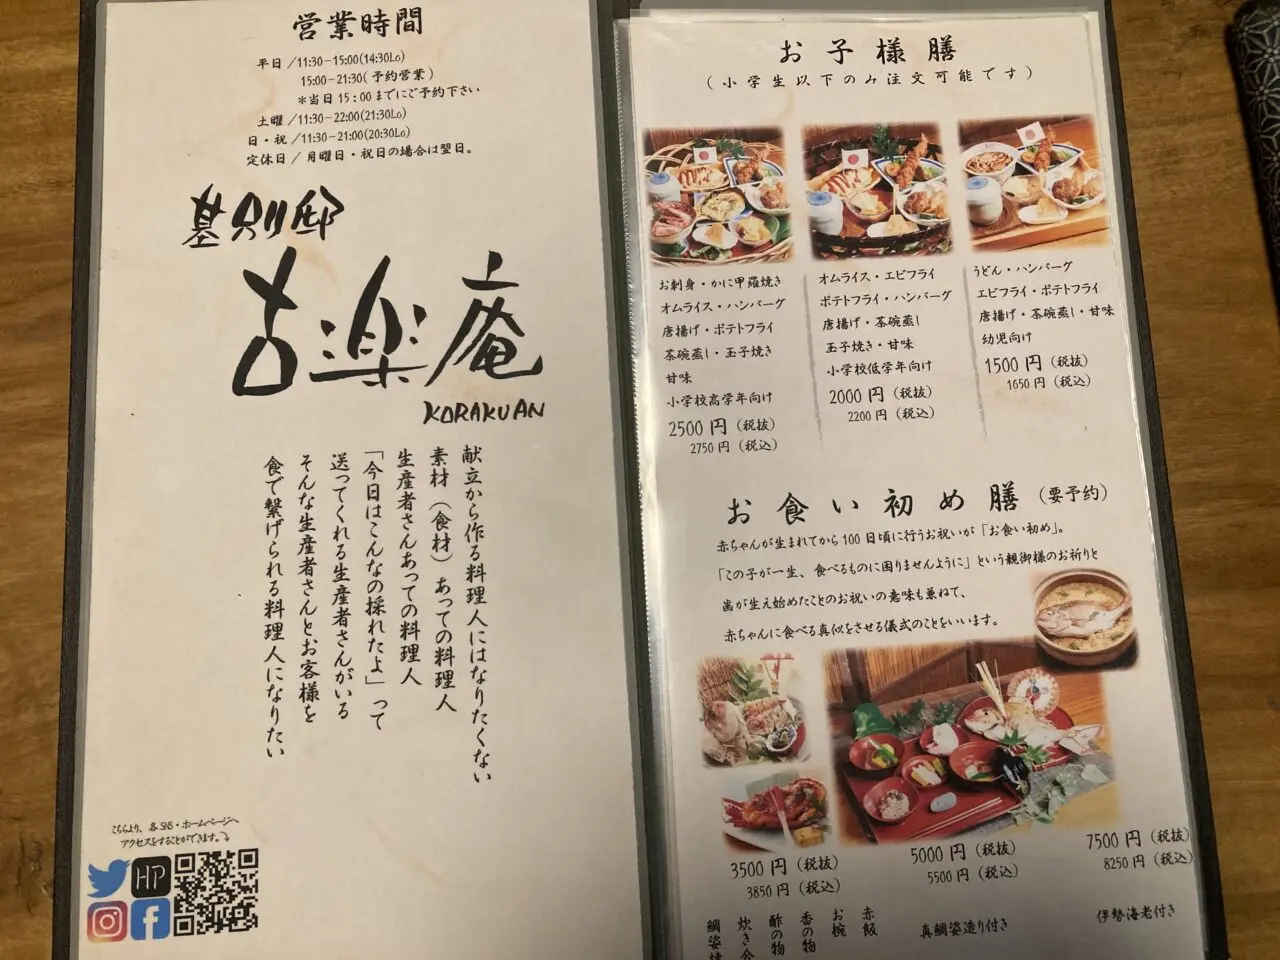 営業時間
平日/11:30-15:00(14:30Lo)
15:00-21:30(予約営業)
*当日15:00までにご予約下さい
土曜/11:30-22:00(21:30Lo)
日・祝/11:30-21:00(20:30Lo)
定休日/月曜日・祝日の場合は翌日。
基別邸
古楽庵
KORAKUAN
献立から作る料理人にはなりたくない
素材(食材)あっての料理人
生産者さんあっての料理人
「今日はこんなの採れたよ」って
送ってくれる生産者さんがいる
そんな生産者さんとお客様を
食で繋げられる料理人になりたい
こちらより、各SNS・ホームページへ
アクセスをすることができます。
HP
お子様膳
(小学生以下のみ注文可能です)
お刺身・かに甲羅焼き
オムライス・ハンバーグ
唐揚げ・ポテトフライ
茶碗蒸し・玉子焼き
甘味
小学校高学年向け
2500円(税抜)
2750円(税込)
オムライス・エビフライ
ポテトフライ・ハンバーグ
唐揚げ・茶碗蒸し
玉子焼き・甘味
小学校低学年向け
2000円(税抜)
2200円(税込)
うどん・ハンバーグ
エビフライ・ポテトフライ
唐揚げ・茶碗蒸し・甘味
幼児向け
1500円(税抜)
1650円(税込)
お食い初め膳(要予約)
赤ちゃんが生まれてから100日頃に行うお祝いが「お食い初め」。
「この子が一生、食べるものに困りませんように」という親御様のお祈りと
歯が生え始めたことのお祝いの意味も兼ねて、
赤ちゃんに食べる真似をさせる儀式のことをいいます。
3500円(税抜)
3850円(税込)
赤飯
お椀
香の物
酢の物
炊き合
鯛姿焼
5000円(税抜)
5500円(税込)
真鯛姿造り付き
7500円(税抜)
8250円(税込)
伊勢海老付き